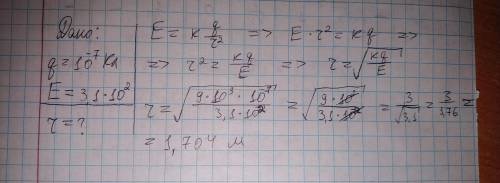 Дано:
q = 10⁻⁷ Кл
E = 3,1·10²
r = ?
E = k q/r² => E·r² = kq =>
=> r² = kq/E => r = √(kq/E)
r = √(9·10⁹·10⁻⁷/3,1·10²) = √(9·10²/3,1·10²) = 3/√3,1 = 3/1,76 =
= 1,704 м